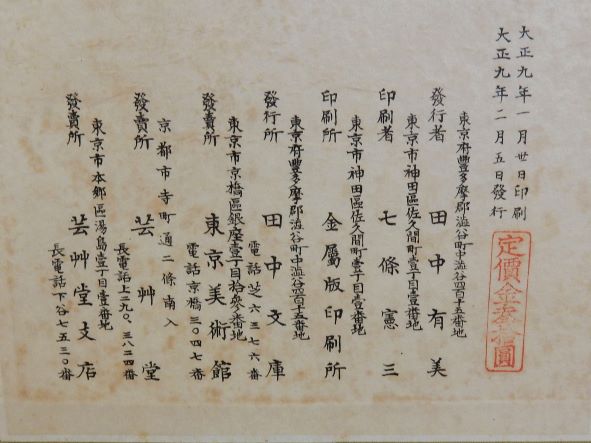 大正九年一月廿日印刷
大正九年二月五日發行
定價金參拾圓
東京府豐多摩郡澁谷町中澁谷四百十五番地
發行者 田中有美
東京市神田區佐久間町壹丁目壹番地
印刷者 七條憲三
東京市神田區佐久間町壹丁目壹番地
印刷所 金屬版印刷所
東京府豐多摩郡澁谷町中澁谷四百十五番地
發行所 田中文庫
電話芝六三七六番
東京市京橋區銀座壹丁目拾參番地
發賣所 東京美術館
電話京橋三〇四七番
京都市寺町通二條南入
發賣所 芸艸堂
長電話上二九〇、三八二四番
東京市本鄉區湯島壹丁目壹番地
發賣所 芸艸堂支店
長電話下谷七五三〇番